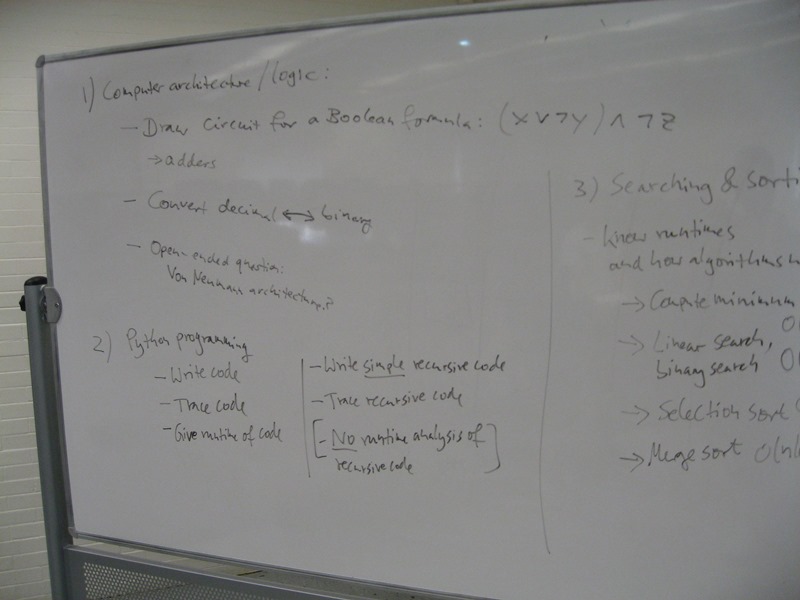 1) Computer architecture/logic:
- Draw circuit for a Boolean formula: (x ∨ ¬y) ∧ ¬z
→ adders
- Convert decimal ↔ binary
- Open-ended question:
Von Neumann architecture?
2) Python programming
- Write code
- Trace code
- Give runtime of code
- Write simple recursive code
- Trace recursive code
[- No runtime analysis of
recursive code]
3) Searching & sorti
- know runtimes
and how algorithms w
→ Compute minimum
O(
→ Linear search,
binary search O(
→ Selection sort
→ Merge sort O(n l